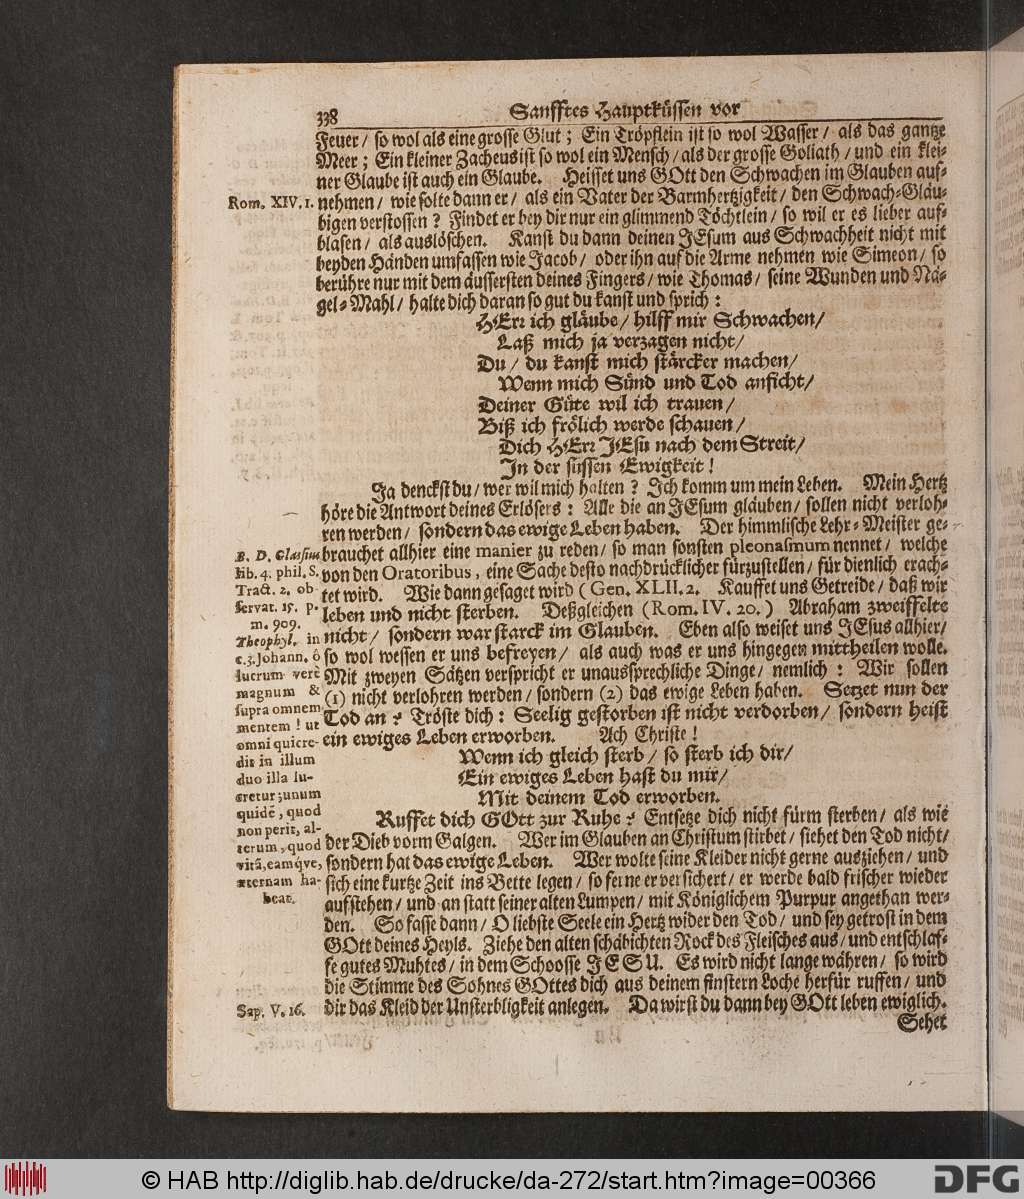 338
Sanfftes Hauptküssen vor
Feuer / so wol als eine grosse Glut ; Ein Tröpflein ist so wol Wasser / als das gantze
Meer ; Ein kleiner Zacheus ist so wol ein Mensch / als der grosse Goliath / und ein klei-
ner Glaube ist auch ein Glaube. Heisset uns GOtt den Schwachen im Glauben auf-
Rom. XIV. 1.
nehmen / wie solte dann er / als ein Vater der Barmhertzigkeit / den Schwach-Gläu-
bigen verstossen ? Findet er bey dir nur ein glimmend Töchtlein / so wil er es lieber auf-
blasen / als auslöschen. Kanst du dann deinen JEsum aus Schwachheit nicht mit
beyden Händen umfassen wie Jacob / oder ihn auf die Arme nehmen wie Simeon / so
berühre nur mit dem äussersten deines Fingers / wie Thomas / seine Wunden und Nä-
gel-Mahl / halte dich daran so gut du kanst und sprich :
HErr ich gläube / hilff mir Schwachen /
Laß mich ja verzagen nicht /
Du / du kanst mich stärcker machen /
Wenn mich Sünd und Tod anficht /
Deiner Güte wil ich trauen /
Biß ich frölich werde schauen /
Dich HErr JEsu nach dem Streit /
In der süssen Ewigkeit !
Ja denckst du / wer wil mich halten ? Ich komm um mein Leben. Mein Hertz
höre die Antwort deines Erlösers : Alle die an JEsum gläuben / sollen nicht verloh-
ren werden / sondern das ewige Leben haben. Der himmlische Lehr-Meister ge-
brauchet allhier eine manier zu reden / so man sonsten pleonasmum nennet / welche
von den Oratoribus, eine Sache desto nachdrücklicher fürzustellen / für dienlich erach-
tet wird. Wie dann gesaget wird (Gen. XLII. 2. Kauffet uns Getreide / daß wir
leben und nicht sterben. Deßgleichen (Rom. IV. 20.) Abraham zweiffelte
nicht / sondern war starck im Glauben. Eben also weiset uns JEsus allhier /
so wol wessen er uns befreyen / als auch was er uns hingegen mittheilen wolle.
Mit zweyen Sätzen verspricht er unaussprechliche Dinge / nemlich : Wir sollen
(1) nicht verlohren werden / sondern (2) das ewige Leben haben. Setzet nun der
Tod an ? Tröste dich : Seelig gestorben ist nicht verdorben / sondern heist
ein ewiges Leben erworben. Ach Christe !
B. D. Glassius
lib. 4. phil. S.
Tract. 2. ob
servat. 15. p.
m. 909.
Theophyl. in
c. 3. Johann. ô
lucrum verè
magnum &
supra omnem
mentem ! ut
omni quicre-
dit in illum
duo illa lu-
cretur ; unum
quidē, quod
non perit, al-
terum, quod
vitā, eamq́ve,
æternam ha-
beat.
Wenn ich gleich sterb / so sterb ich dir /
Ein ewiges Leben hast du mir /
Mit deinem Tod erworben.
Ruffet dich GOtt zur Ruhe ? Entsetze dich nicht fürm sterben / als wie
der Dieb vorm Galgen. Wer im Glauben an Christum stirbet / siehet den Tod nicht /
sondern hat das ewige Leben. Wer wolte seine Kleider nicht gerne ausziehen / und
sich eine kurtze Zeit ins Bette legen / so ferne er versichert / er werde bald frischer wieder
aufstehen / und an statt seiner alten Lumpen / mit Königlichem Purpur angethan wer-
den. So fasse dann / O liebste Seele ein Hertz wider den Tod / und sey getrost in dem
GOtt deines Heyls. Ziehe den alten schäbichten Rock des Fleisches aus / und entschlaf-
fe gutes Muhtes / in dem Schoosse JESU. Es wird nicht lange währen / so wird
die Stimme des Sohnes GOttes dich aus deinem finstern Loche herfür ruffen / und
Sap. V. 16.
dir das Kleid der Unsterbligkeit anlegen. Da wirst du dann bey GOtt leben ewiglich.
Sehet
© HAB http://diglib.hab.de/drucke/da-272/start.htm?image=00366
DFG